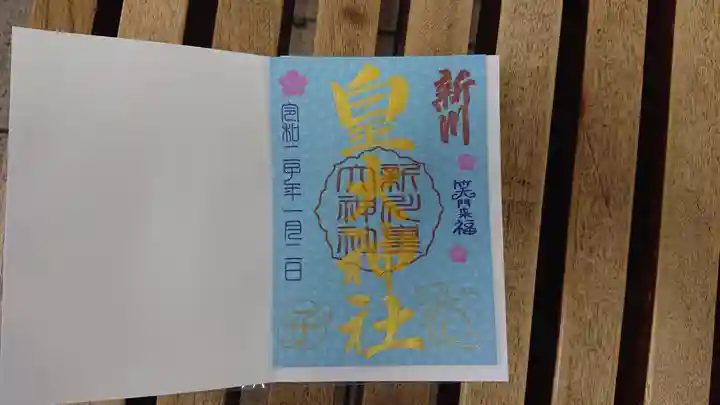 新川
笑門来福
皇大神社
新川皇
大神社
令和二子年一月二日
子